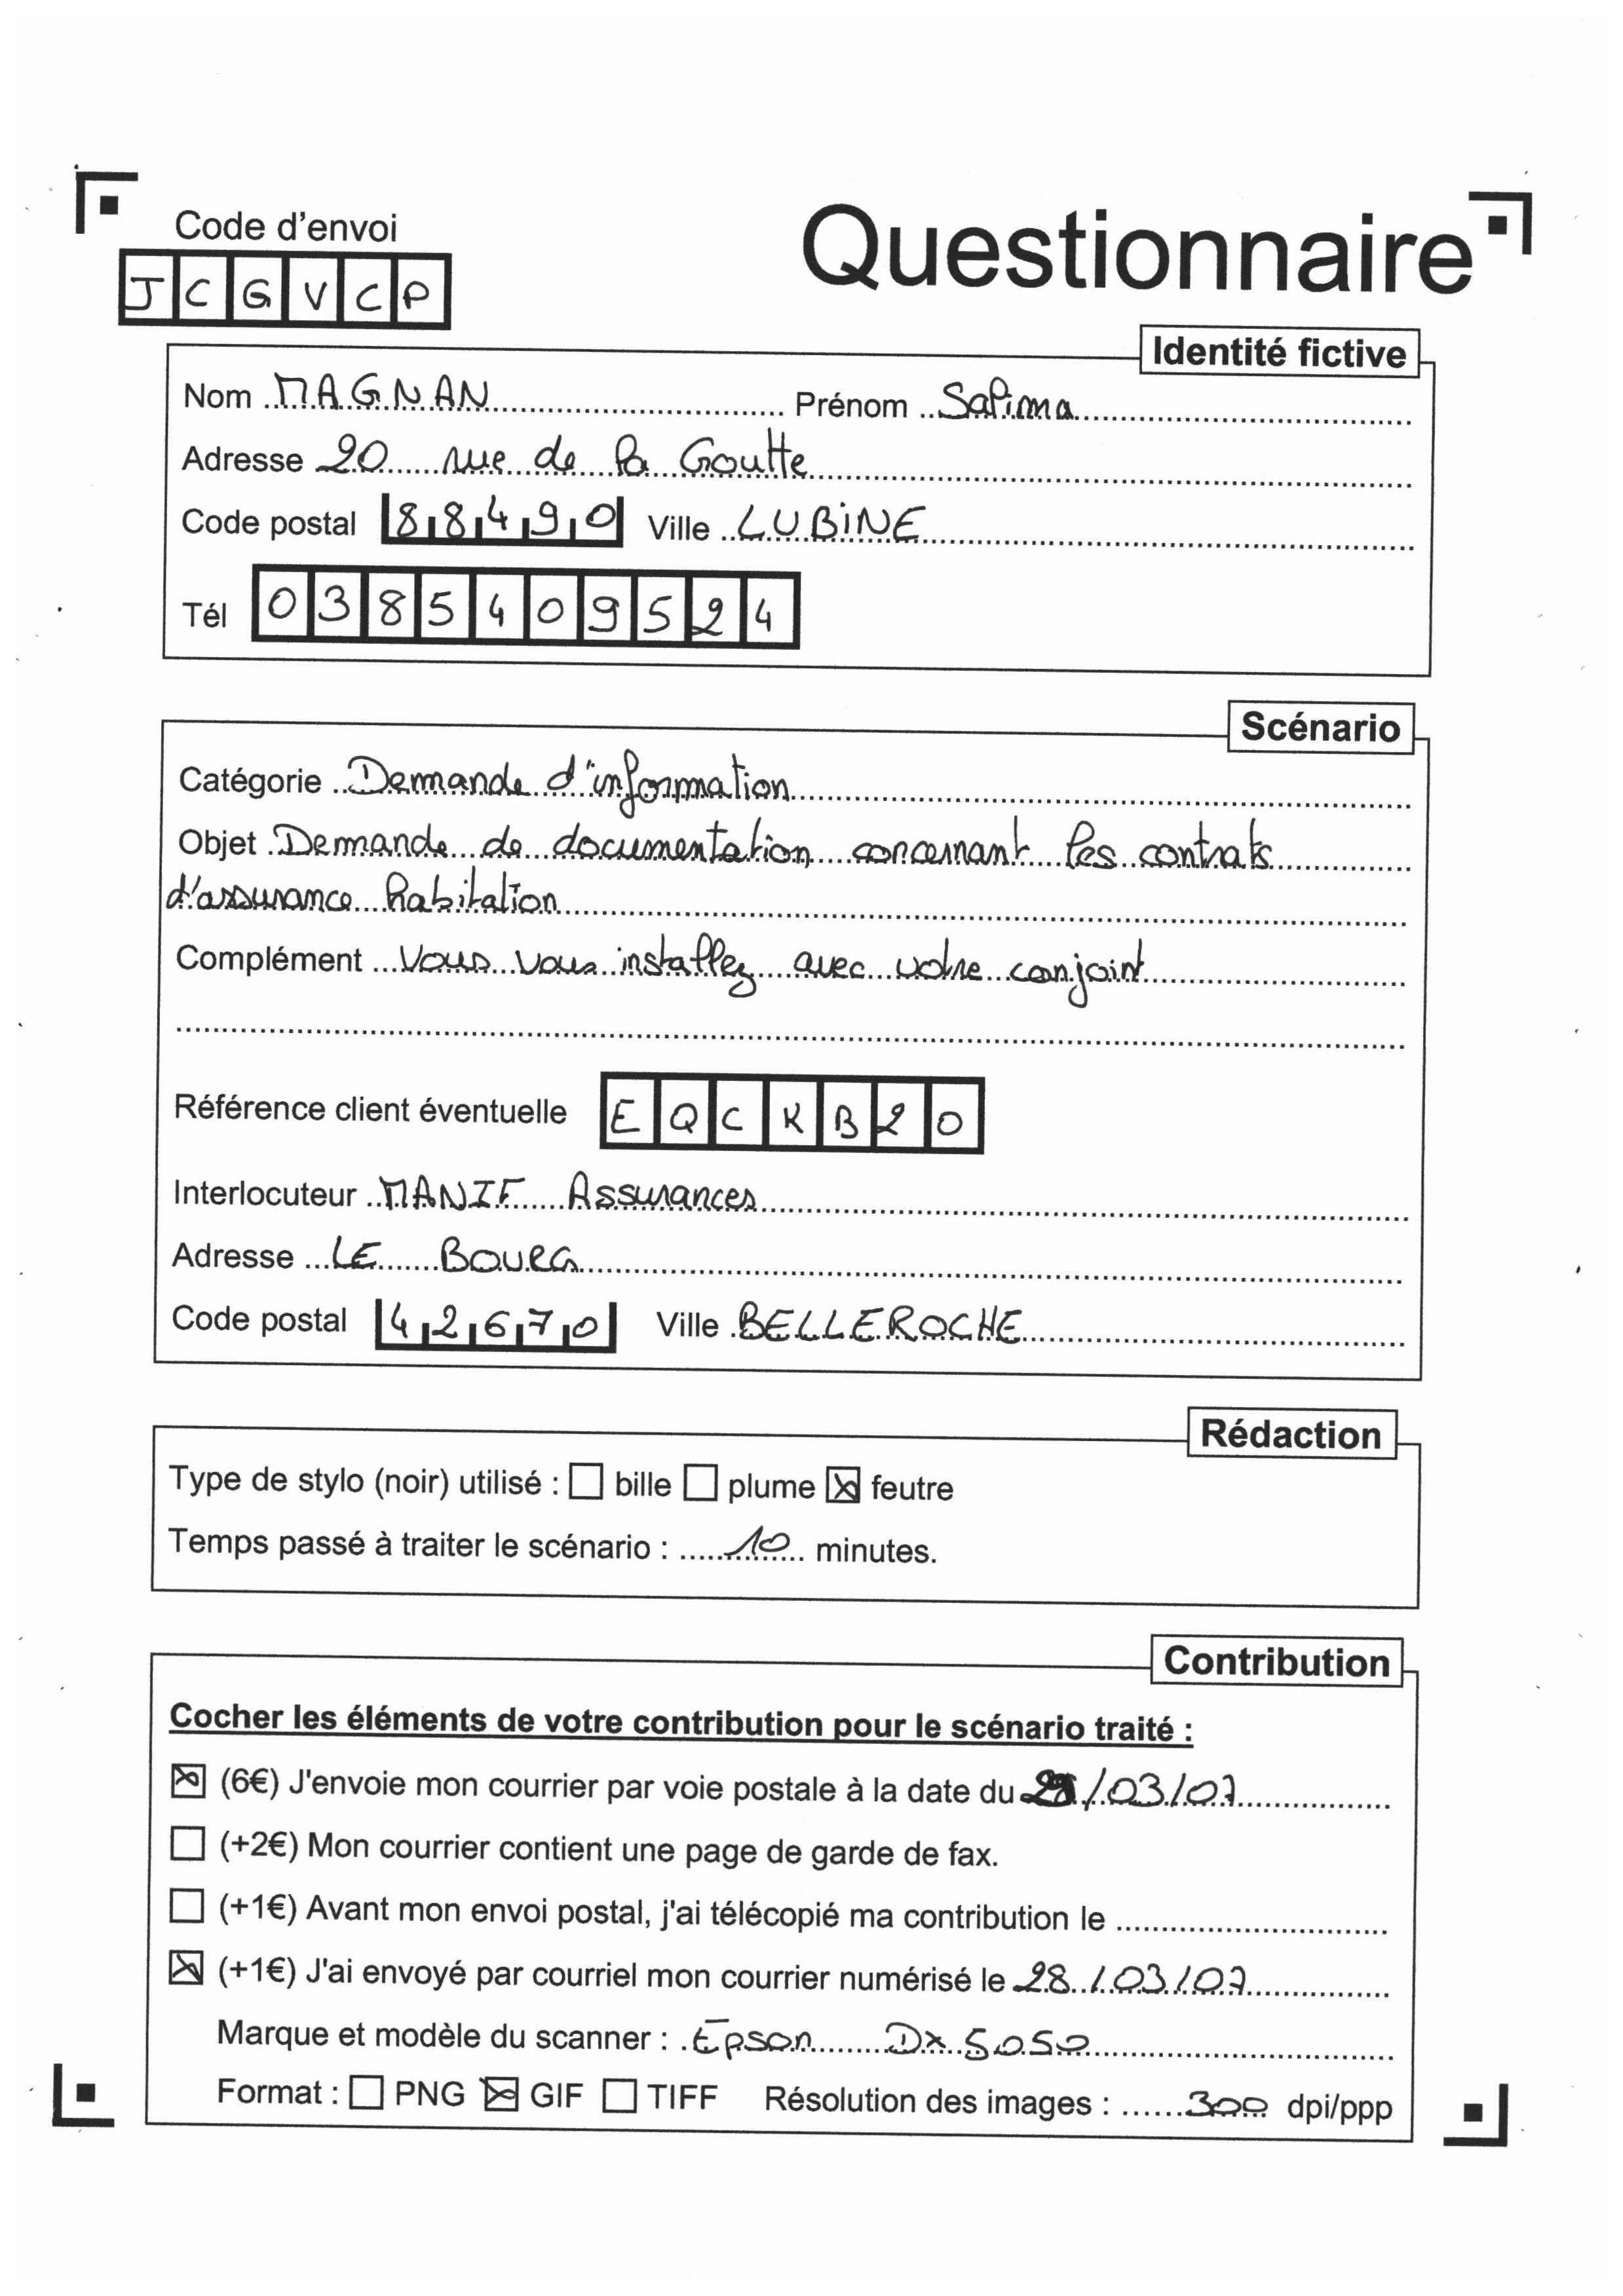 Code d'envoi
Questionnaire
JCGVCP
Identité fictive
Nom MAGNAN Prénom Salima
Adresse 20 rue de la Goutte
Code postal 88490 Ville LUBINE
Tél 0385409524
Scénario
Catégorie Demande d'information
Objet Demande de documentation concernant les contrats
d'assurance habitation
Complément Vous vous installez avec votre conjoint
Référence client éventuelle EQCKB20
Interlocuteur MANIF Assurances
Adresse LE BOURG
Code postal 42670 Ville BELLEROCHE
Rédaction
Type de stylo (noir) utilisé : bille plume feutre
Temps passé à traiter le scénario : 10 minutes.
Contribution
Cocher les éléments de votre contribution pour le scénario traité :
(6€) J'envoie mon courrier par voie postale à la date du /03/07
(+2€) Mon courrier contient une page de garde de fax.
(+1€) Avant mon envoi postal, j'ai télécopié ma contribution le
(+1€) J'ai envoyé par courriel mon courrier numérisé le 28/03/07
Marque et modèle du scanner : Epson Dx 5050
Format : PNG GIF TIFF Résolution des images : 300 dpi/ppp